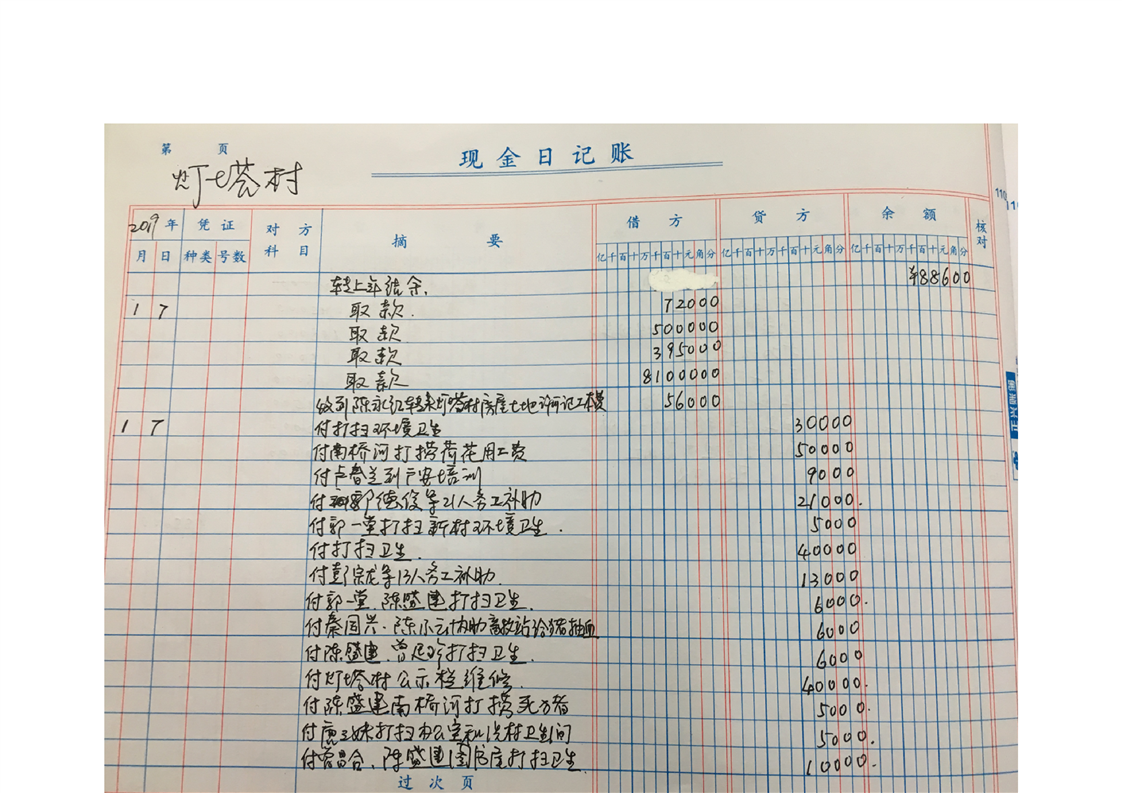 第 页
现金日记账
灯塔村
2019年 凭证 对方科目 摘要 借方 贷方 余额 核对
月 日 种类 号数 亿千百十万千百十元角分 亿千百十万千百十元角分 亿千百十万千百十元角分
转上年结余. ¥88600
1 7 取款. 72000
取款 500000
取款 395000
取款 8100000
收到陈永红转来灯塔村房屋土地许可证工本费 56000
1 7 付打扫环境卫生 30000
付南桥河打捞荷花用工费 50000
付卢春兰到广安培训 9000
付郭德俊等21人务工补助 21000.
付郭一堂打扫新村环境卫生. 5000
付打扫卫生. 40000
付彭宗龙等13人务工补助. 13000
付郭一堂.陈盛建打扫卫生. 6000.
付秦国兴.陈小云协助畜牧站给猪抽血 6000
付陈盛建.曾 打扫卫生. 6000
付灯塔村公示栏维修. 40000.
付陈盛建南桥河打捞死猪 5000.
付 妹打扫办公室和 村卫生间 5000.
付 合.陈盛建 打扫卫生. 10000.
过次页
110